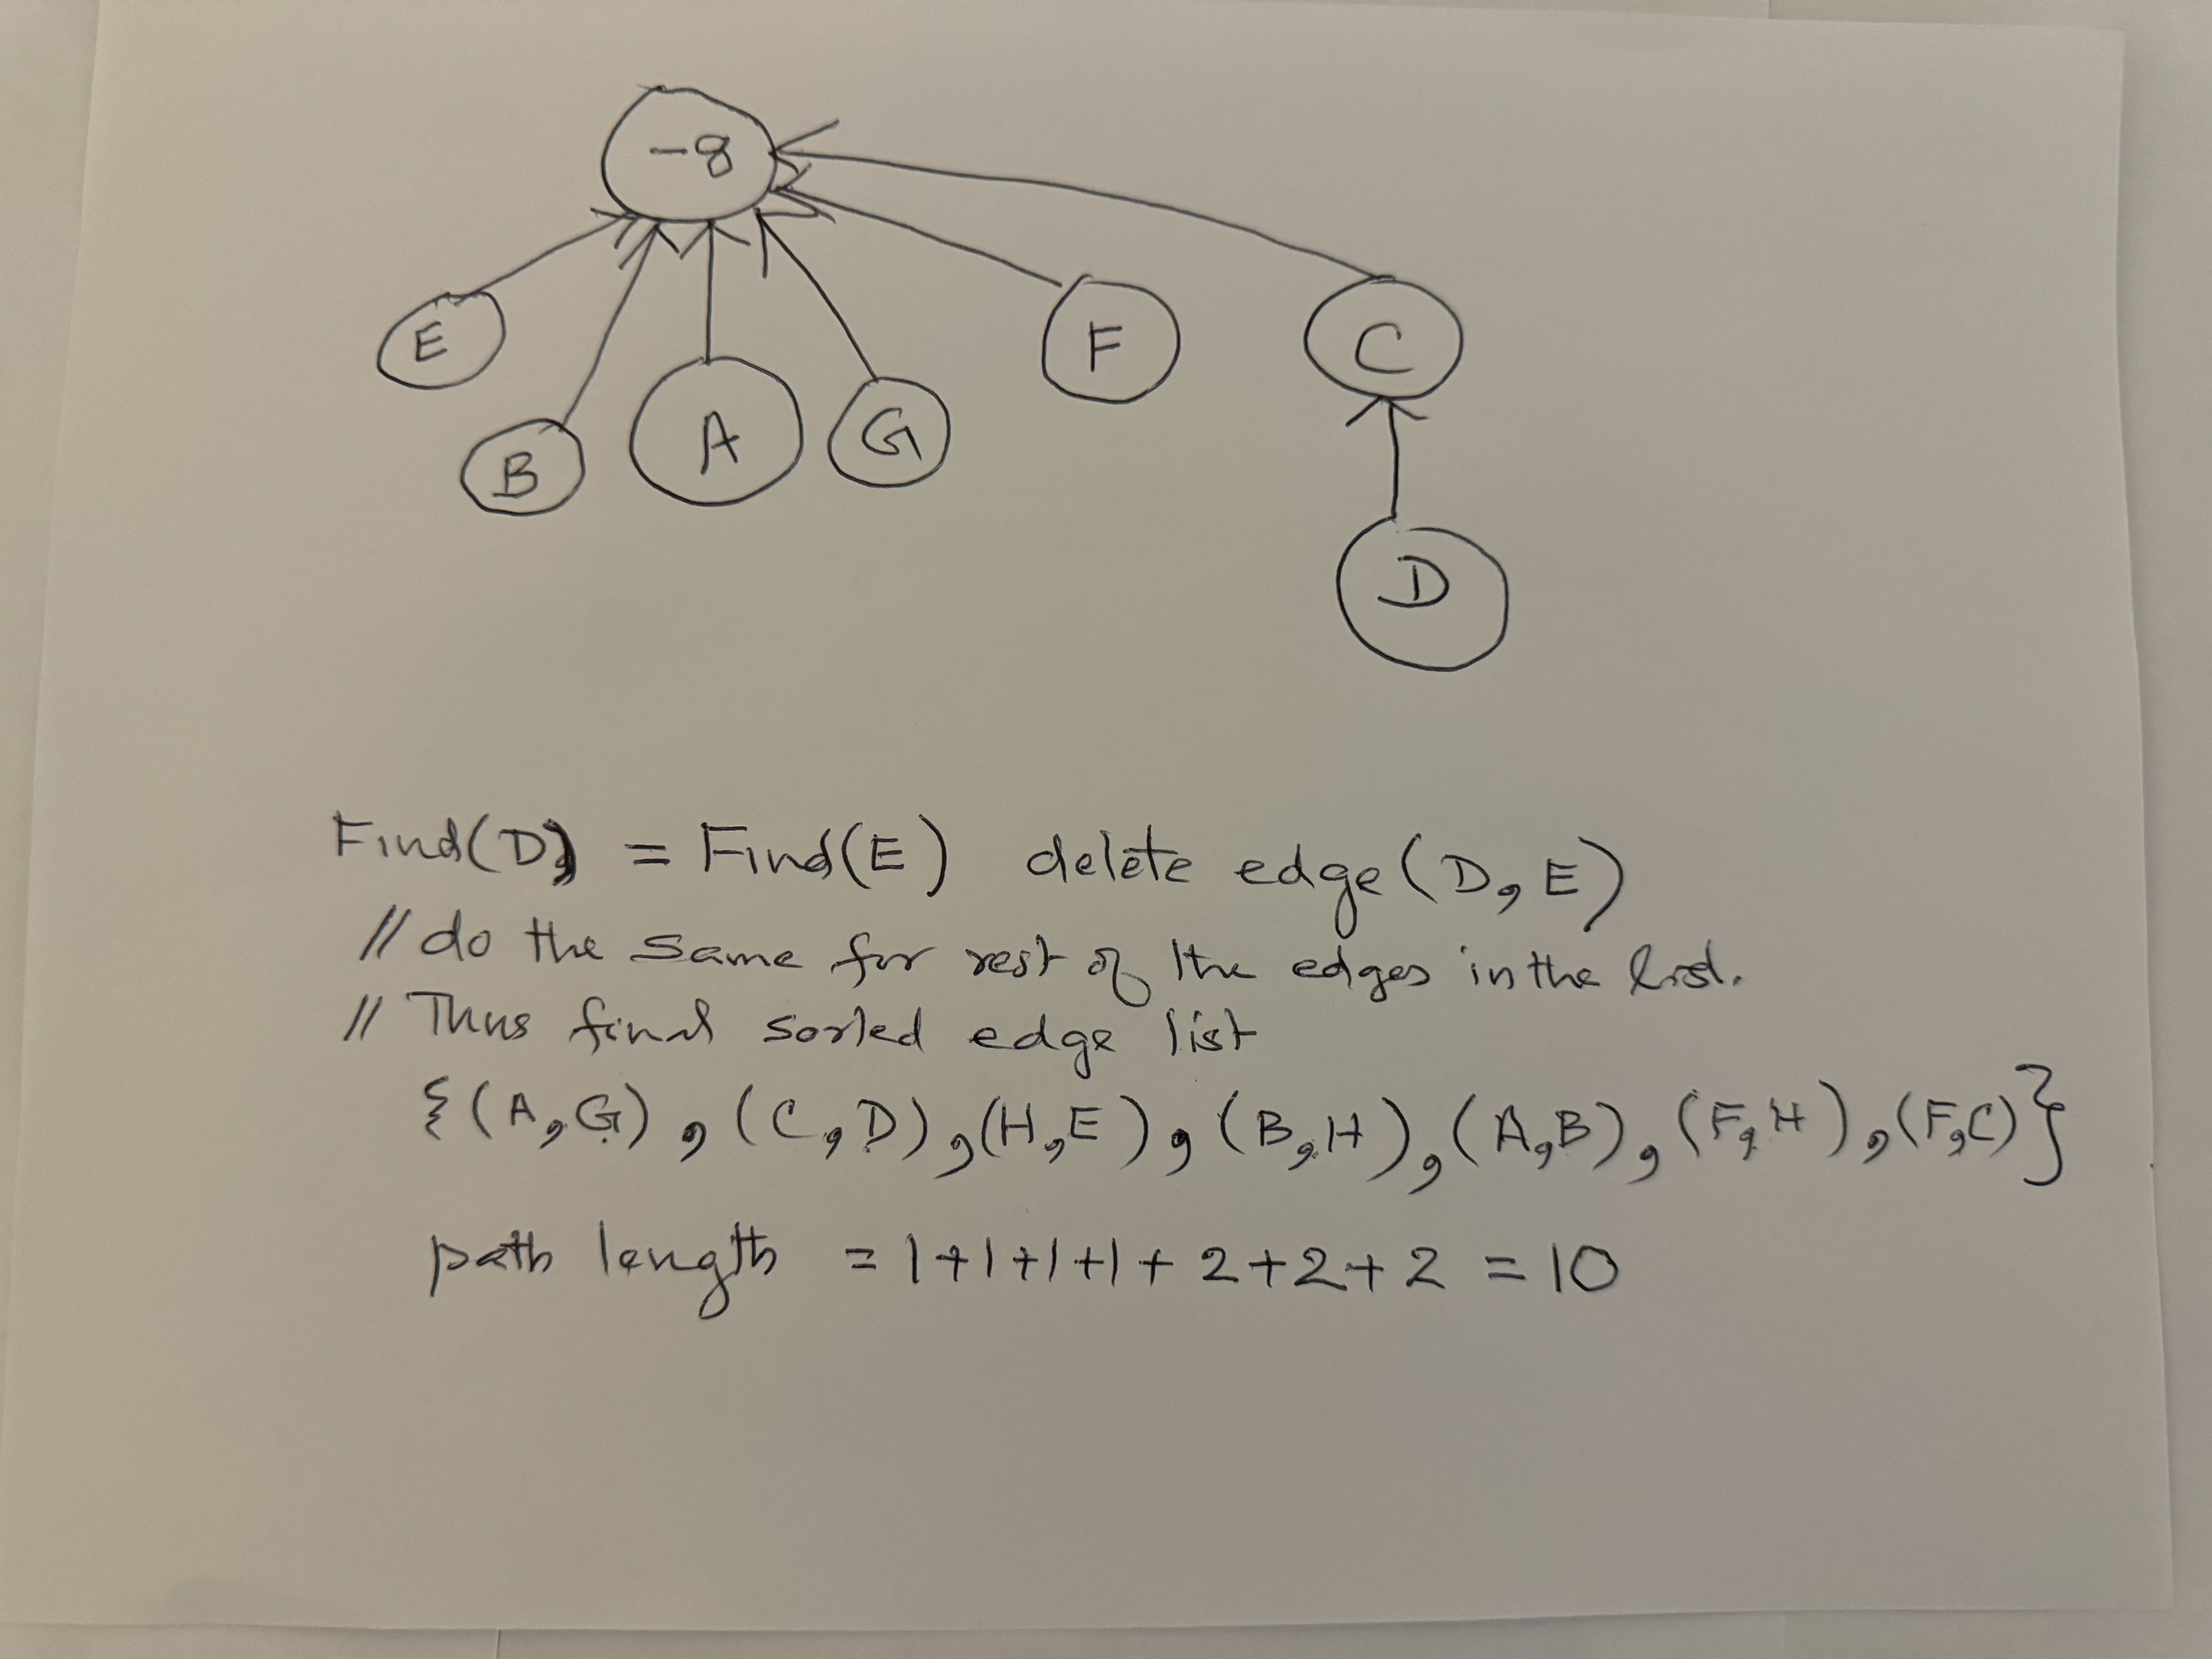 -8
E
F
C
B
A
G
D
Find(D) = Find(E) delete edge(D, E)
// do the same for rest of the edges in the list.
// Thus final sorted edge list
{(A,G), (C,D), (H,E), (B,H), (A,B), (F,H), (F,C)}
path length = 1+1+1+1+2+2+2 = 10